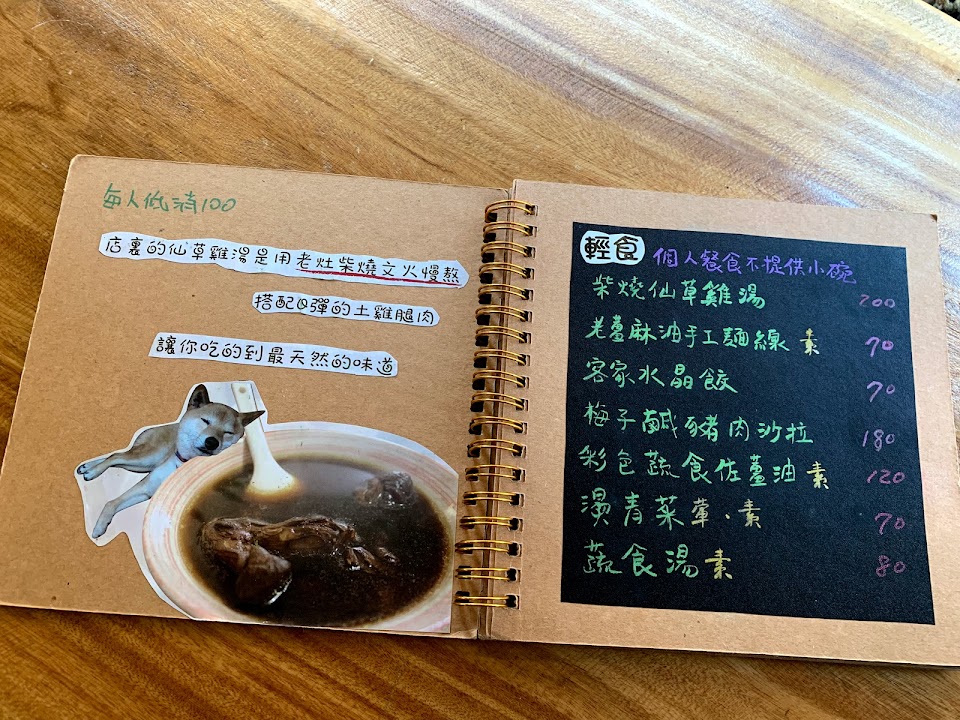 每人低消100
店裏的仙草雞湯是用老灶柴燒文火慢熬
搭配Q彈的土雞腿肉
讓你吃的到最天然的味道
輕食 個人餐食不提供小碗
柴燒仙草雞湯 200
老薑麻油手工麵線 素 70
客家水晶餃 70
梅子鹹豬肉沙拉 180
彩色蔬食佐薑油 素 120
燙青菜 葷.素 70
蔬食湯 素 80